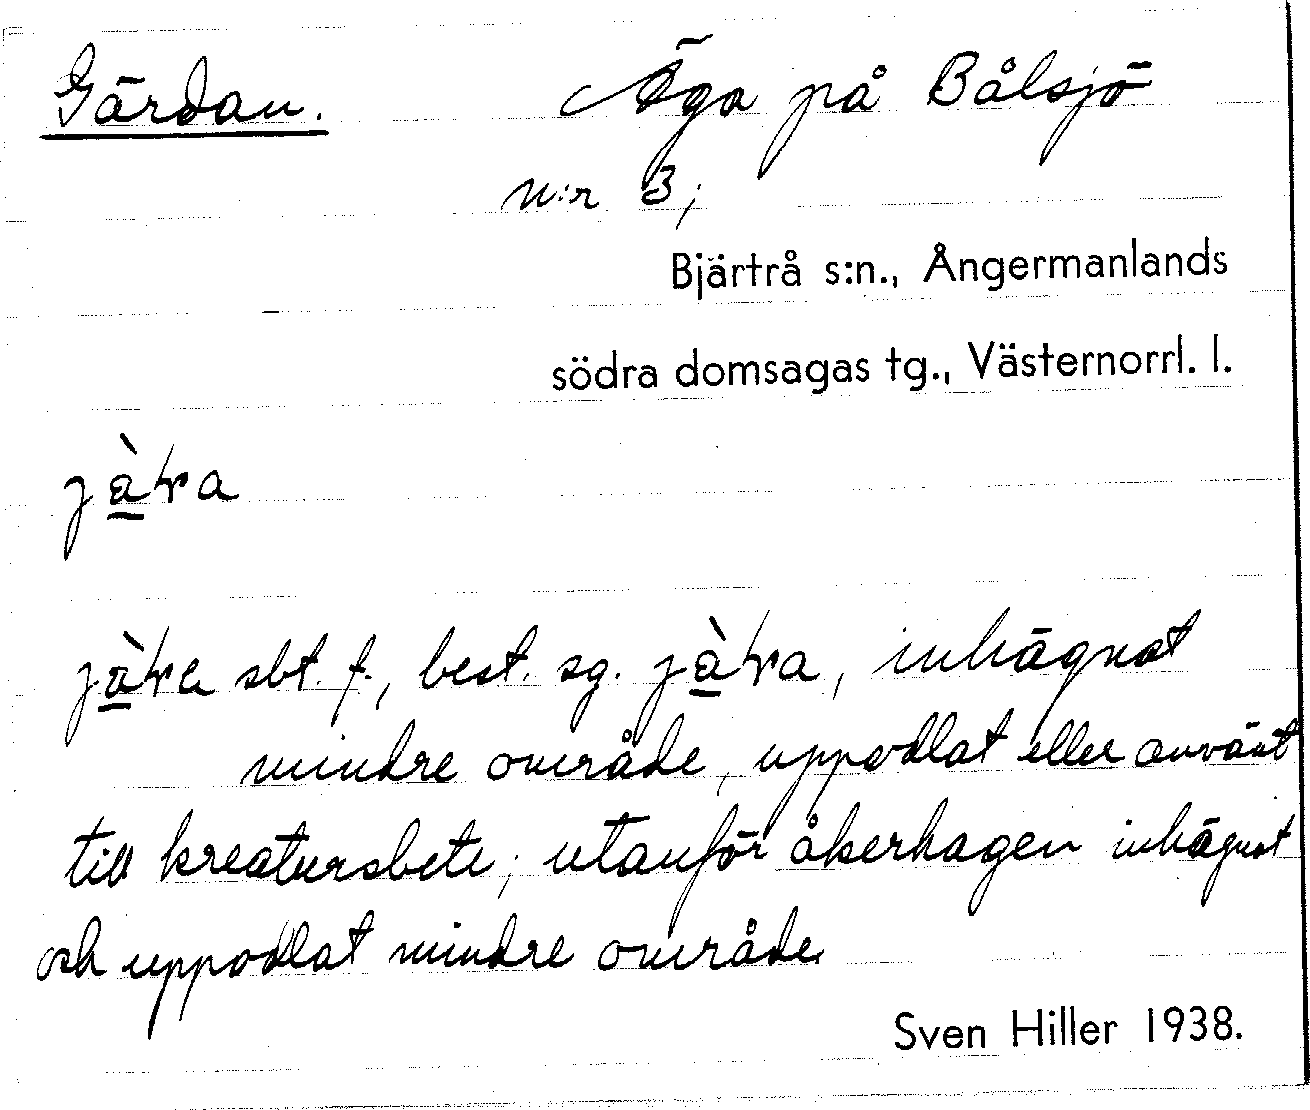 Gärdan. Äga på Bålsjö
n:r 3;
Bjärtrå s:n., Ångermanlands
södra domsagas tg., Västernorrl. l.
sbt. f., best. sg. inhägnat
mindre område, uppodlat eller använt
till kreatursbete; utanför åkerhagen inhägnat
och uppodlat mindre område.
Sven Hiller 1938.